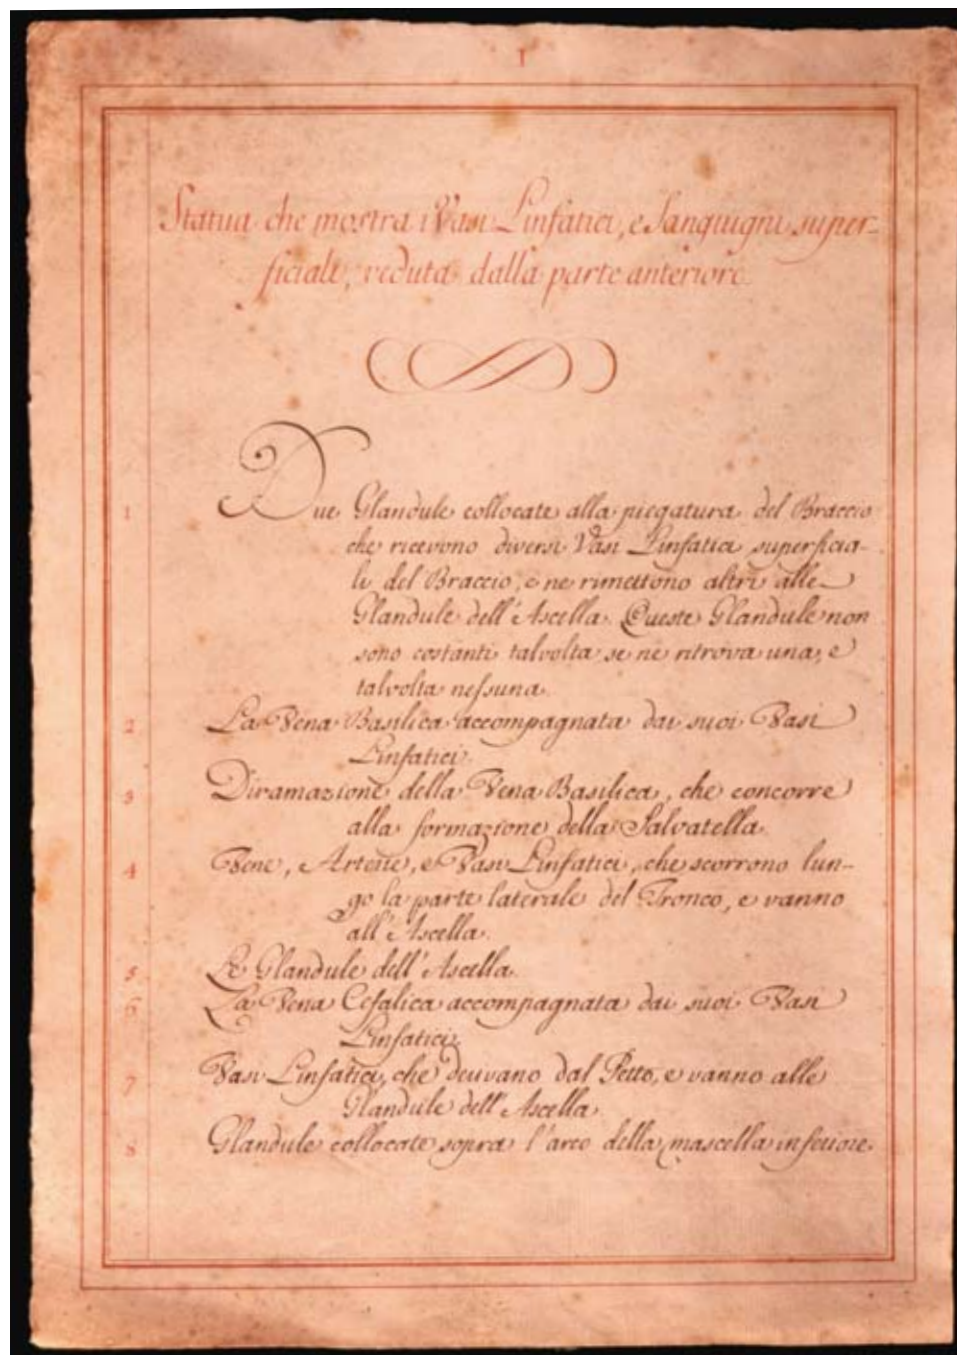 I
Statua che mostra i Vasi Linfatici, e Sanguigni super-
ficiali, veduta dalla parte anteriore.
1 Due Glandule collocate alla piegatura del Braccio
che ricevono diversi Vasi Linfatici superficia-
li del Braccio, e ne rimettono altri alle
Glandule dell'Ascella. Queste Glandule non
sono costanti talvolta se ne ritrova una, e
talvolta nessuna.
2 La Vena Basilica accompagnata dai suoi Vasi
Linfatici.
3 Diramazione della Vena Basilica, che concorre
alla formazione della Salvatella.
4 Vene, Arterie, e Vasi Linfatici, che scorrono lun-
go la parte laterale del Tronco, e vanno
all'Ascella.
5 Le Glandule dell'Ascella.
6 La Vena Cefalica accompagnata dai suoi Vasi
Linfatici.
7 Vasi Linfatici, che derivano dal Petto, e vanno alle
Glandule dell'Ascella.
8 Glandule collocate sopra l'arco della mascella inferiore.